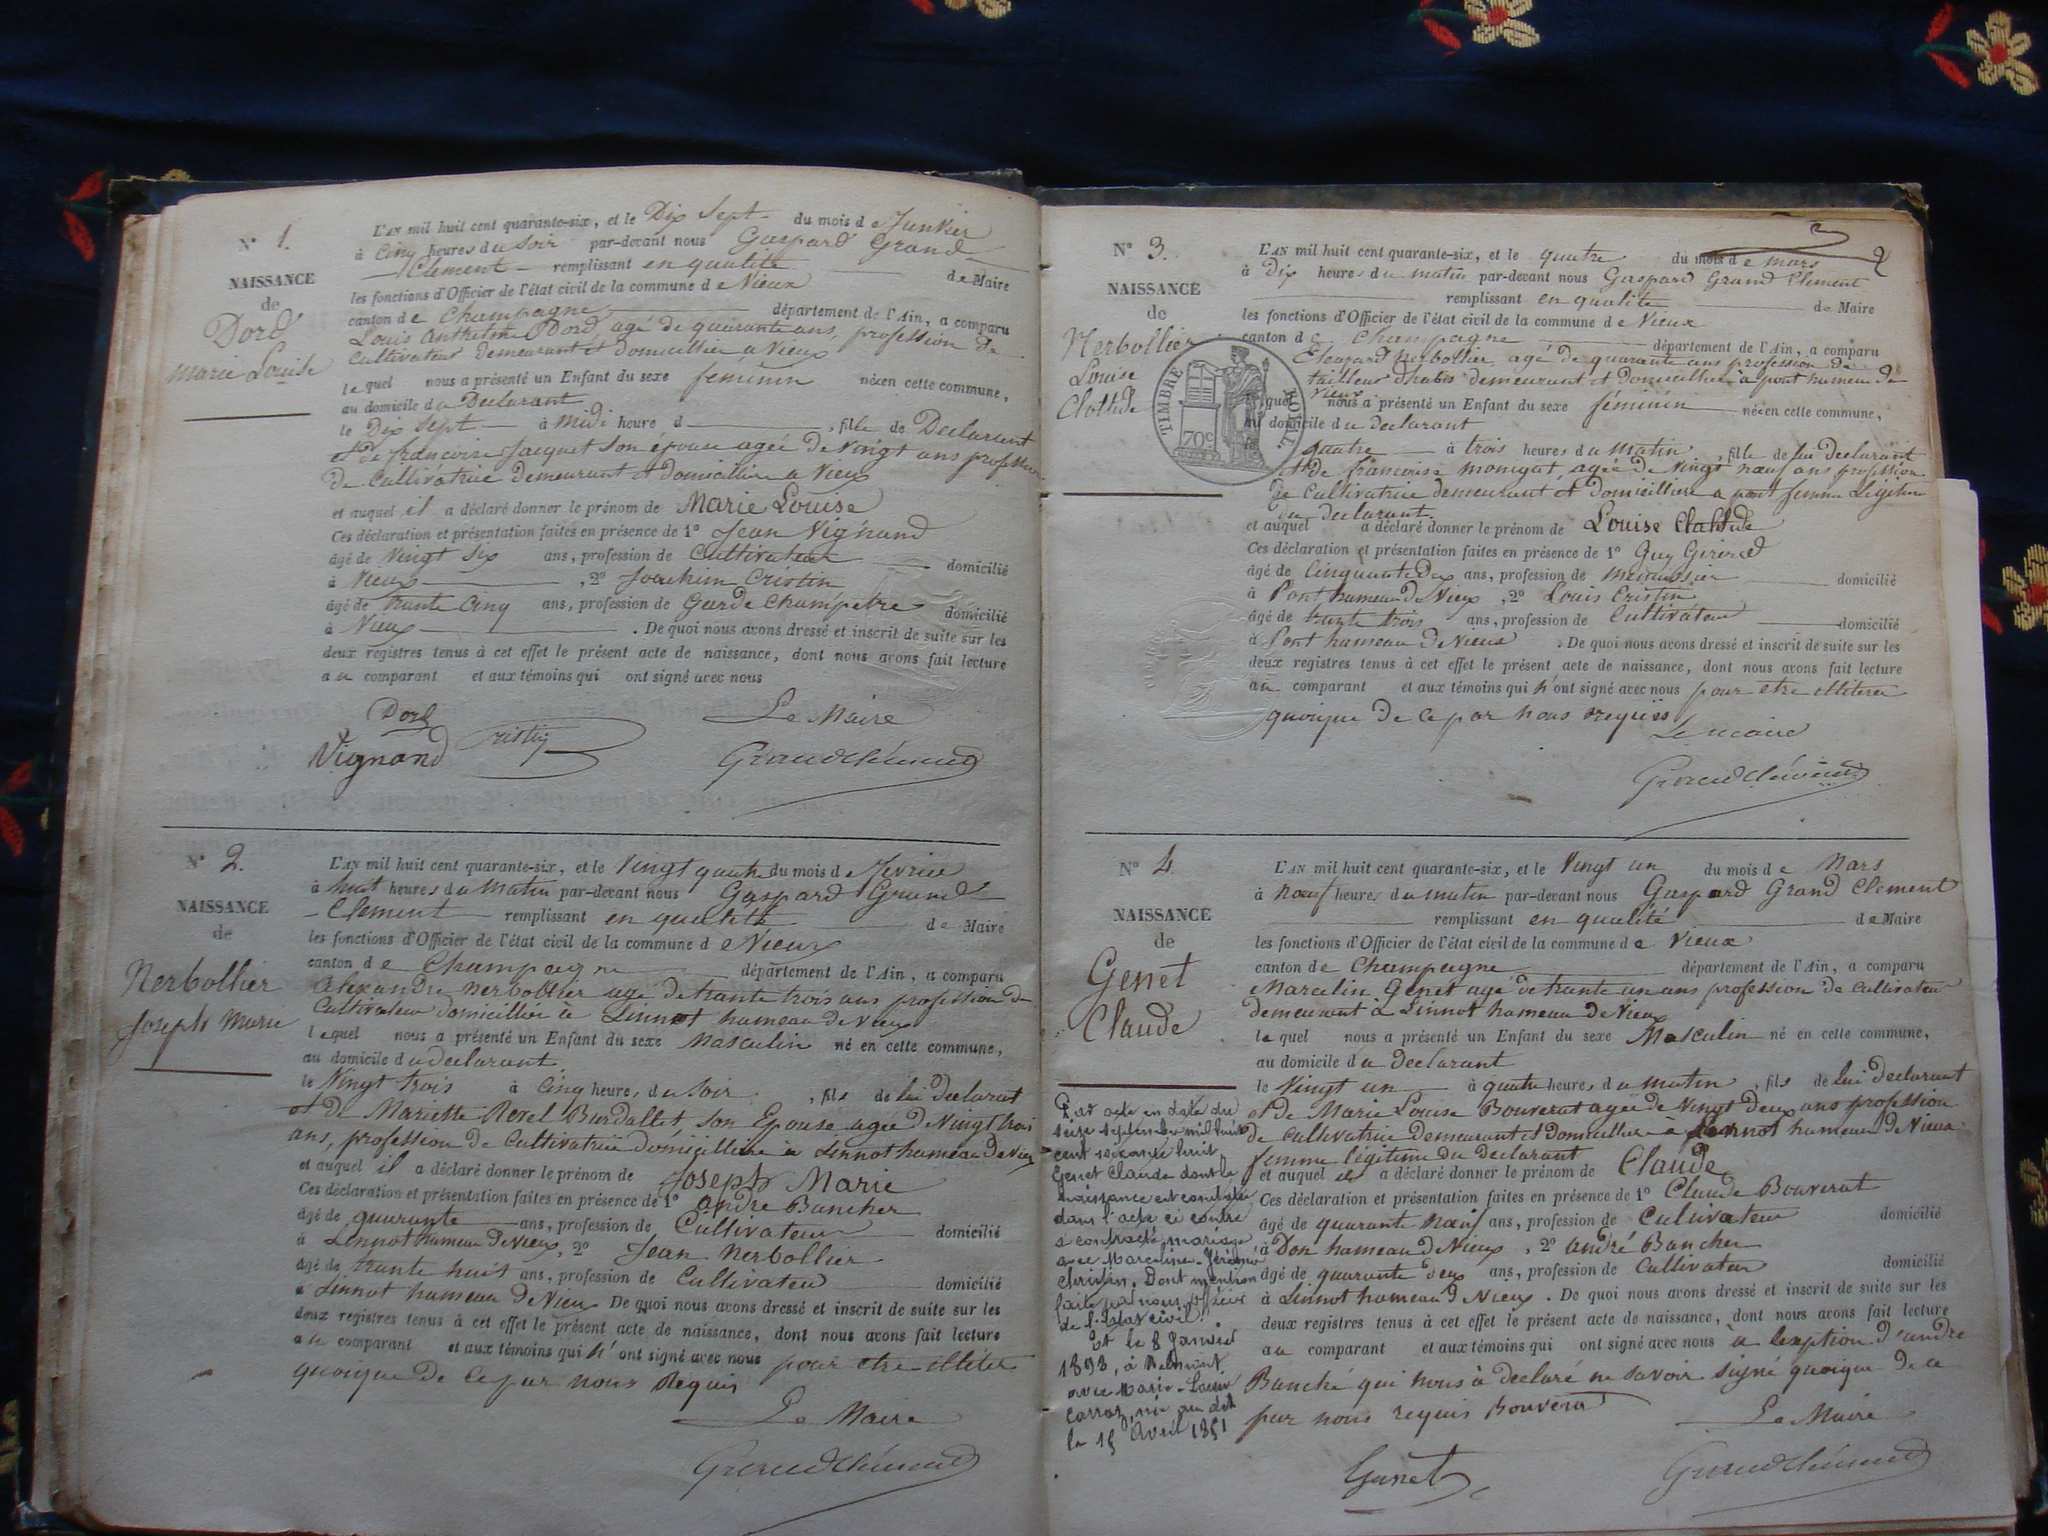 N° 1.
NAISSANCE
de
Dord
Marie Louise
L'AN mil huit cent quarante-six, et le Dix sept du mois de Janvier
à Cinq heures du soir par-devant nous Gaspard Grand
Clement remplissant en qualité de Maire
les fonctions d'Officier de l'état civil de la commune de Vieux
canton de Champagne département de l'Ain, a comparu
Louis Anthelme Dord agé de quarante ans, profession de
Cultivateur demeurant et Domicillier a Vieux
lequel nous a présenté un Enfant du sexe feminin née en cette commune,
au domicile du Declarant
le Dix Sept à Midi heure d , fille de Declarant
et de francoise Jacquet son épouse agée de Vingt ans profession
de Cultivatrice demeurant et domicilliere a Vieux
et auquel il a déclaré donner le prénom de Marie Louise
Ces déclaration et présentation faites en présence de 1° Jean Vignand
âgé de Vingt Six ans, profession de Cultivateur domicilié
à Vieux , 2° Joachim Cristin
âgé de trante Cinq ans, profession de Garde Champetre domicilié
à Vieux . De quoi nous avons dressé et inscrit de suite sur les
deux registres tenus à cet effet le présent acte de naissance, dont nous avons fait lecture
au comparant et aux témoins qui ont signé avec nous
Dord Le Maire
Vignand Cristin Grandclément
N° 2.
NAISSANCE
de
Nerbollier
Joseph Marie
L'AN mil huit cent quarante-six, et le Vingt quatre du mois de Fevrier
à huit heures du Matin par-devant nous Gaspard Grand
Clement remplissant en qualité de Maire
les fonctions d'Officier de l'état civil de la commune de Vieux
canton de Champagne département de l'Ain, a comparu
Alexandre Nerbollier agé de trante trois ans profession de
Cultivateur domicillier a Linnot hameau de Vieux
lequel nous a présenté un Enfant du sexe Masculin né en cette commune,
au domicile du declarant
le Vingt trois à Cinq heures du Soir , fils de lui declarant
et de Mariette Revel Burdallet son Epouse agée de Vingt trois
ans, profession de Cultivatrice domicilliere a Linnot hameau de Vieux
et auquel il a déclaré donner le prénom de Joseph Marie
Ces déclaration et présentation faites en présence de 1° andre Bancher
âgé de quarante ans, profession de Cultivateur domicilié
à Linnot hameau de Vieux, 2° Jean Nerbollier
âgé de trante huit ans, profession de Cultivateur domicilié
à Linnot hameau de Vieux De quoi nous avons dressé et inscrit de suite sur les
deux registres tenus à cet effet le présent acte de naissance, dont nous avons fait lecture
au comparant et aux témoins qui n'ont signé avec nous pour etre illiteré
quoique de ce par nous Requis
Le Maire
Grandclément
N° 3.
NAISSANCE
de
Nerbollier
Louise
Clotilde
TIMBRE ROYAL
70c
L'AN mil huit cent quarante-six, et le quatre du mois de mars
à Dix heures du matin par-devant nous Gaspard Grand Clement
remplissant en qualité de Maire
les fonctions d'Officier de l'état civil de la commune de Vieux
canton de Champagne département de l'Ain, a comparu
Nerbollier agé de quarante ans profession de
tailleur d'habis demeurant et Domicillier a pont hameau de
Vieux
lequel nous a présenté un Enfant du sexe féminin née en cette commune,
au domicile du declarant
le quatre à trois heures du Matin , fille de lui Declarant
et de francoise Mongat agée de Vingt neuf ans profession
de Cultivatrice demeurant et Domicilliere a pont femme Legitime
du declarant
et auquel a déclaré donner le prénom de Louise Clotilde
Ces déclaration et présentation faites en présence de 1° Guy Girord
âgé de Cinquante Deux ans, profession de Menuisier domicilié
à Pont hameau de Vieux , 2° Louis Cristin
âgé de trante trois ans, profession de Cultivateur domicilié
à Pont hameau de Vieux . De quoi nous avons dressé et inscrit de suite sur les
deux registres tenus à cet effet le présent acte de naissance, dont nous avons fait lecture
au comparant et aux témoins qui n'ont signé avec nous pour etre illiteré
quoique de ce par nous requis
Le maire
Grandclément
N° 4.
NAISSANCE
de
Genet
Claude
L'AN mil huit cent quarante-six, et le Vingt un du mois de Mars
à Nœuf heures du matin par-devant nous Gaspard Grand Clement
remplissant en qualité de Maire
les fonctions d'Officier de l'état civil de la commune de Vieux
canton de Champagne département de l'Ain, a comparu
Marcelin Genet agé de trante un ans profession de cultivateur
demeurant à Linnot hameau de Vieux
lequel nous a présenté un Enfant du sexe Masculin né en cette commune,
au domicile du Declarant
le Vingt un à quatre heures du matin , fils de lui declarant
et de Marie Louise Bouverat agée de Vingt Deux ans profession
de cultivatrice demeurant et Domicilliere a Linnot hameau de Vieux
femme légitime du Declarant
et auquel il a déclaré donner le prénom de Claude
Ces déclaration et présentation faites en présence de 1° Claude Bouverat
âgé de quarante Nœuf ans, profession de Cultivateur domicilié
à Don hameau de Vieux , 2° André Bancher
âgé de quarante deux ans, profession de Cultivateur domicilié
à Linnot hameau de Vieux . De quoi nous avons dressé et inscrit de suite sur les
deux registres tenus à cet effet le présent acte de naissance, dont nous avons fait lecture
au comparant et aux témoins qui ont signé avec nous a lexption d'andre
Banché qui nous à declaré ne savoir signé quoique de ce
par nous requis Bouverat
Le Maire
Genet Grandclément
Par acte en date du
seize septembre mil huit
cent soixante huit,
Genet Claude dont la
naissance est constatée
dans l'acte ci contre
a contracté mariage
avec Marceline Jérémie
Christin, Dont mention
faite par nous officier
de l'Etat civil.
Et le 8 Janvier
1893, à Belmont
avec Marie-Louise
Carraz, née au dit
le 15 Avril 1851